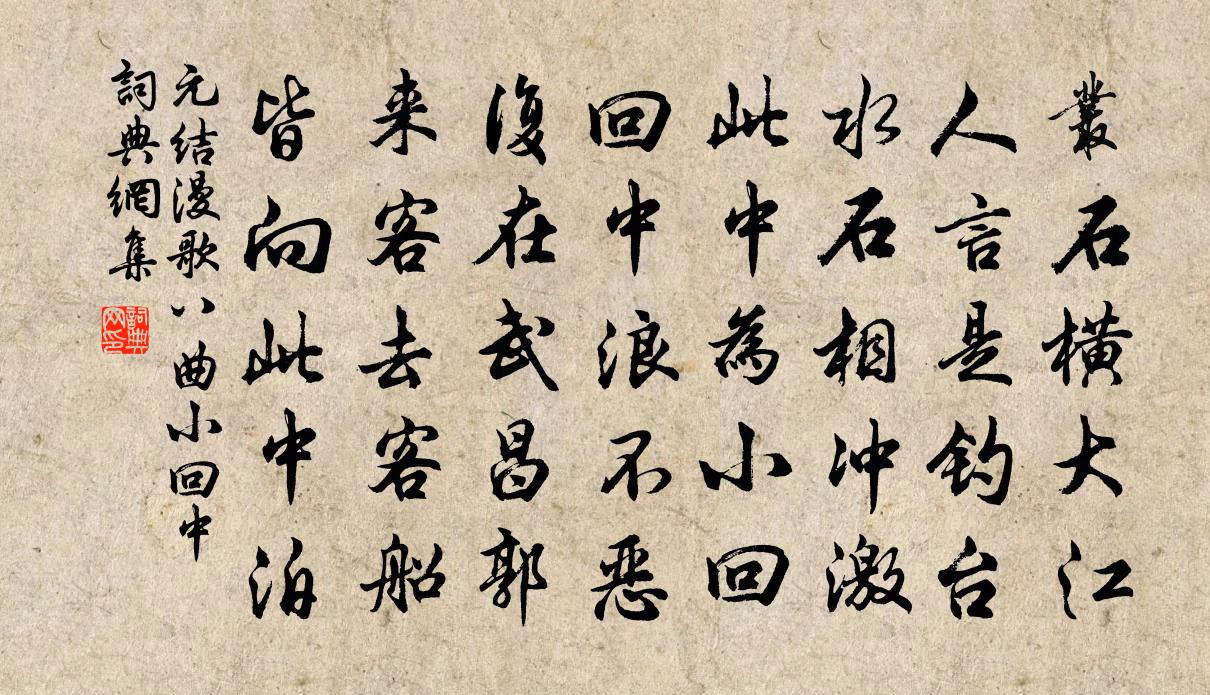 叢石橫大江
人言是釣台
水石相冲激
此中為小回
回中浪不恶
復在武昌郭
来客去客船
皆向此中泊
元结漫歌八曲小回中
詞典網集
詞典
网印